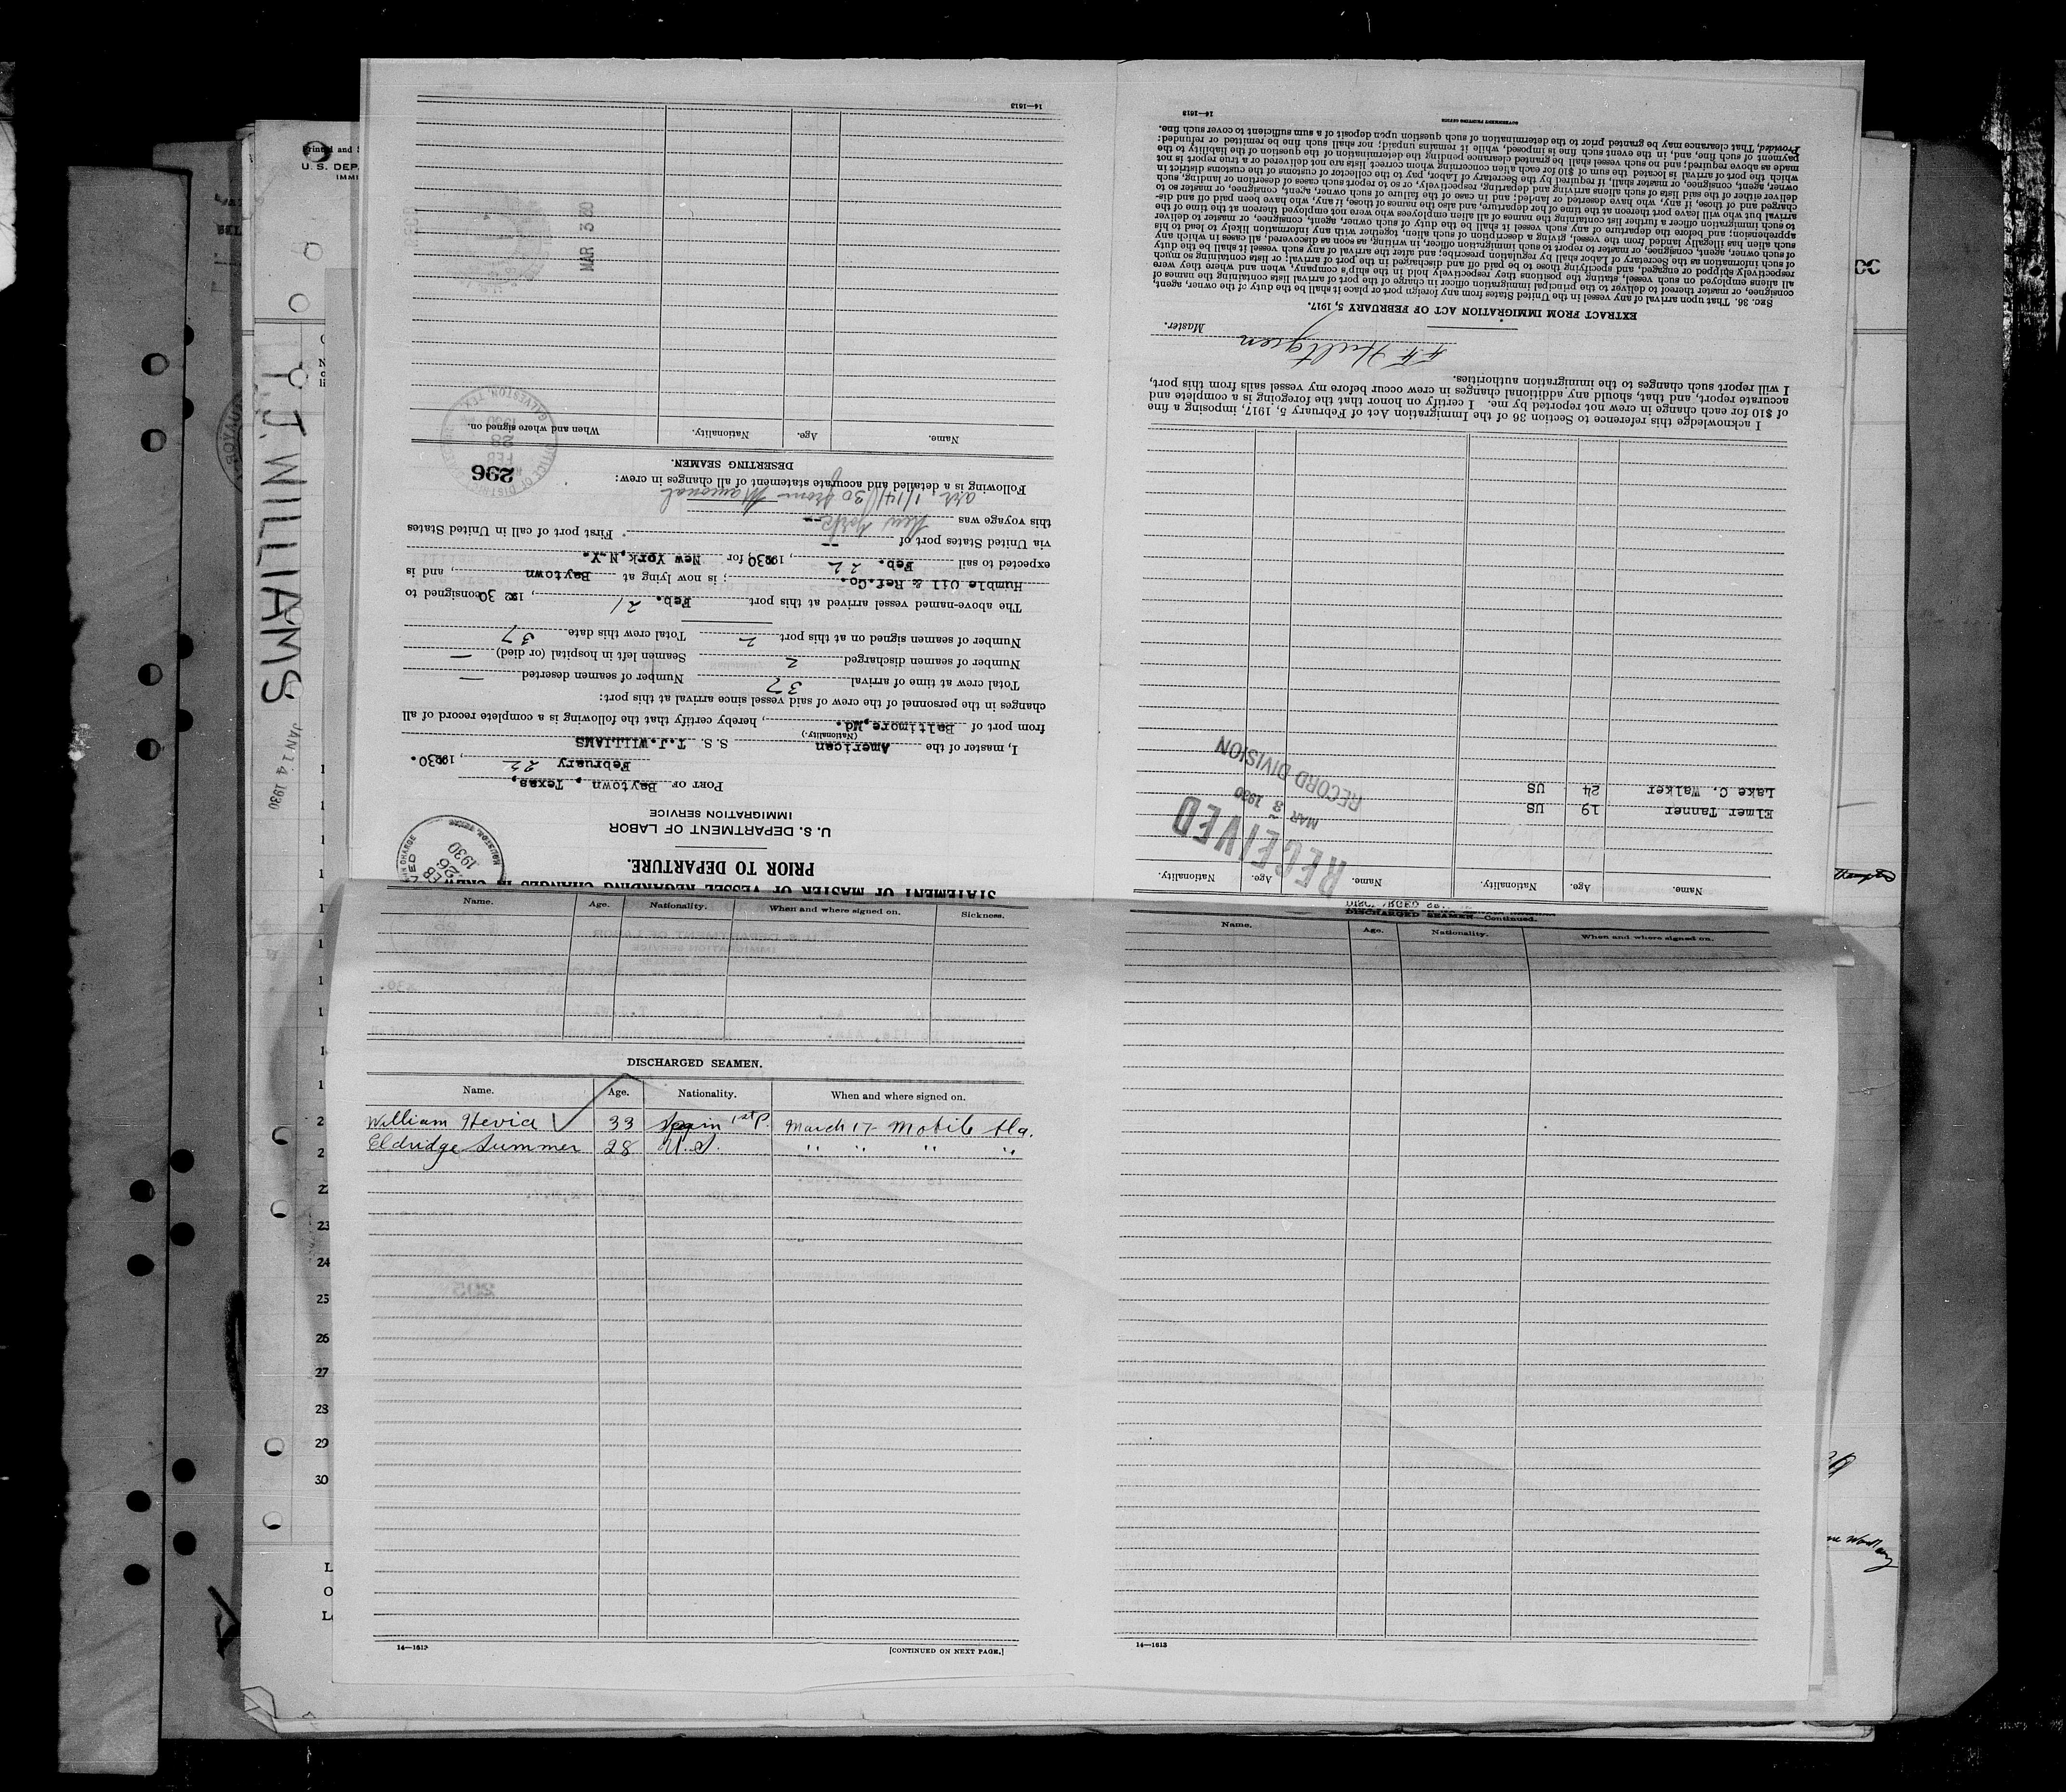 STATEMENT OF MASTER OF VESSEL REGARDING CHANGES IN CREW
PRIOR TO DEPARTURE.
U. S. DEPARTMENT OF LABOR
IMMIGRATION SERVICE
PORT OF Baytown , Texas,
February 22, 1930.
I, master of the American S. S. T.J.WILLIAMS
(Nationality.)
from port of Baltimore,Md. , hereby certify that the following is a complete record of all
changes in the personnel of the crew of said vessel since arrival at this port:
Total crew at time of arrival 37 Number of seamen deserted —
Number of seamen discharged 2 Seamen left in hospital (or died) —
Number of seamen signed on at this port 2 Total crew this date 37
The above-named vessel arrived at this port Feb. 21 , 192 30 consigned to
Humble Oil & Ref.Co. ; is now lying at Baytown , and is
expected to sail Feb. 22 , 1930, for New York,N.Y.
via United States port of -- . First port of call in United States
this voyage was New York
arr. 1/14/30 from
Following is a detailed and accurate statement of all changes in crew:
296
DESERTING SEAMEN.
Name. Age. Nationality. When and where signed on.
OFFICE OF DISTRICT
FEB 28 1930
GALVESTON, TEX.
MAR 3 30
14—1613
FEB 26 1930
HOUSTON, TEXAS
Name. Age. Nationality. Name. Age. Nationality.
Elmer Tanner 19 US
Lake C. Walker 24 US
RECEIVED
MAR 3 1930
RECORD DIVISION
I acknowledge this reference to Section 36 of the Immigration Act of February 5, 1917, imposing a fine
of $10 for each change in crew not reported by me. I certify on honor that the foregoing is a complete and
accurate report, and that, should any additional changes in crew occur before my vessel sails from this port,
I will report such changes to the immigration authorities.
Hultgren
Master.
EXTRACT FROM IMMIGRATION ACT OF FEBRUARY 5, 1917.
Sec. 36. That upon arrival of any vessel in the United States from any foreign port or place it shall be the duty of the owner, agent,
consignee, or master thereof to deliver to the principal immigration officer in charge of the port of arrival lists containing the names of
all aliens employed on such vessel, stating the positions they respectively hold in the ship's company, when and where they were
respectively shipped or engaged, and specifying those to be paid off and discharged in the port of arrival; or lists containing so much
of such information as the Secretary of Labor shall by regulation prescribe; and after the arrival of any such vessel it shall be the duty
of such owner, agent, consignee, or master to report to such immigration officer, in writing, as soon as discovered, all cases in which any
such alien has illegally landed from the vessel, giving a description of such alien, together with any information likely to lead to his
apprehension; and before the departure of any such vessel it shall be the duty of such owner, agent, consignee, or master to deliver
to such immigration officer a further list containing the names of all alien employees who were not employed thereon at the time of the
arrival but who will leave port thereon at the time of her departure, and also the names of those, if any, who have been paid off and dis-
charged and of those, if any, who have deserted or landed; and in case of the failure of such owner, agent, consignee, or master so to
deliver either of the said lists of such aliens arriving and departing, respectively, or so to report such cases of desertion or landing, such
owner, agent, consignee, or master shall, if required by the Secretary of Labor, pay to the collector of customs of the customs district in
which the port of arrival is located the sum of $10 for each alien concerning whom correct lists are not delivered or a true report is not
made as above required; and no such vessel shall be granted clearance pending the determination of the question of the liability to the
payment of such fine, and, in the event such fine is imposed, while it remains unpaid; nor shall such fine be remitted or refunded:
Provided, That clearance may be granted prior to the determination of such question upon deposit of a sum sufficient to cover such fine.
GOVERNMENT PRINTING OFFICE
14—1613
Name. Age. Nationality. When and where signed on. Sickness.
DISCHARGED SEAMEN.
Name. Age. Nationality. When and where signed on.
William Hevia 33 Spain 1st P. March 17 - Mobile Ala.
Eldridge Summer 28 U.S. " " " "
14—1613
[CONTINUED ON NEXT PAGE.]
DISCHARGED SEAMEN—Continued.
Name. Age. Nationality. When and where signed on.
14—1613
Printed and
U. S. DEP
IMMI
T.J. WILLIAMS
JAN 14 1930
22
23
24
25
26
27
28
29
30